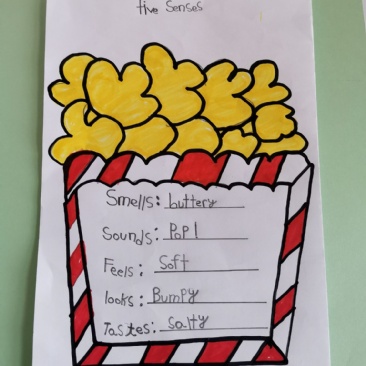 five senses
Smells: buttery
Sounds: Pop!
Feels: Soft
looks: Bumpy
Tastes: salty